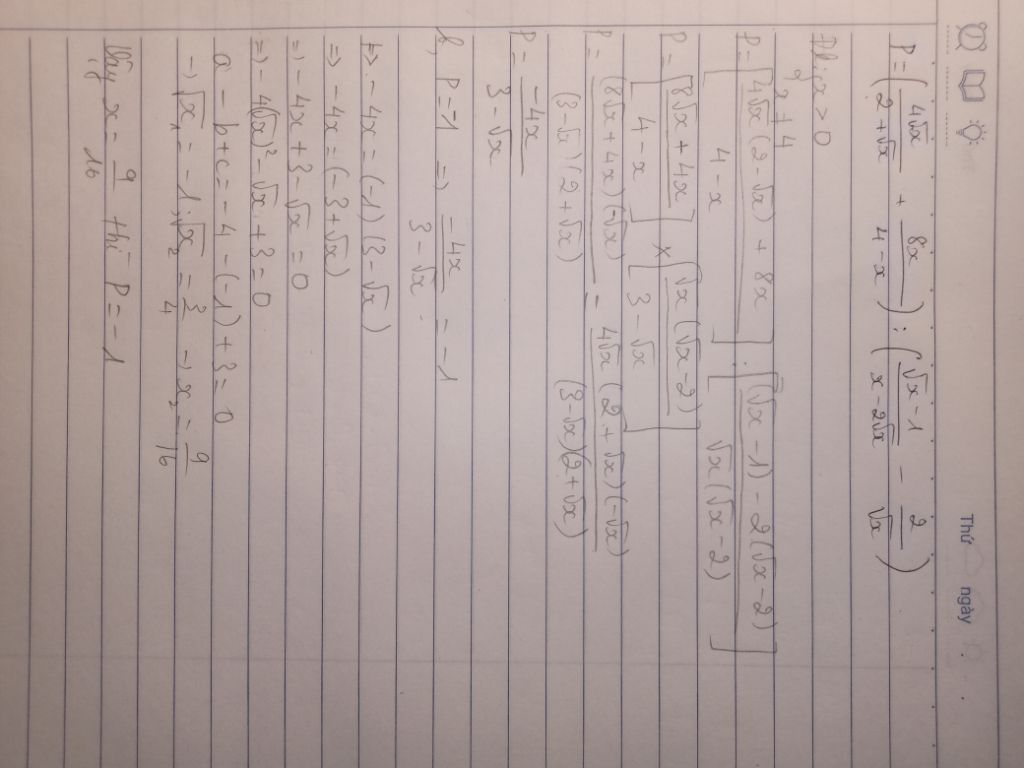 Thứ ngày
P = (4√x/(2+√x) + 8x/(4-x)) : ((√x-1)/(x-2√x) - 2/√x)
Đk: x > 0
x ≠ 4
P = [(4√x(2-√x) + 8x)/(4-x)] : [((√x-1) - 2(√x-2))/(√x(√x-2))]
P = [(8√x + 4x)/(4-x)] × [(√x(√x-2))/(3-√x)]
P = ((8√x + 4x)(-√x))/((3-√x)(2+√x)) = (4√x(2+√x)(-√x))/((3-√x)(2+√x))
P = -4x/(3-√x)
b, P = -1 => -4x/(3-√x) = -1
=> -4x = (-1)(3-√x)
=> -4x = (-3+√x)
=> -4x + 3 - √x = 0
=> -4(√x)² - √x + 3 = 0
a - b + c = -4 - (-1) + 3 = 0
→ √x₁ = -1; √x₂ = 3/4 → x₂ = 9/16
Vậy x = 9/16 thì P = -1